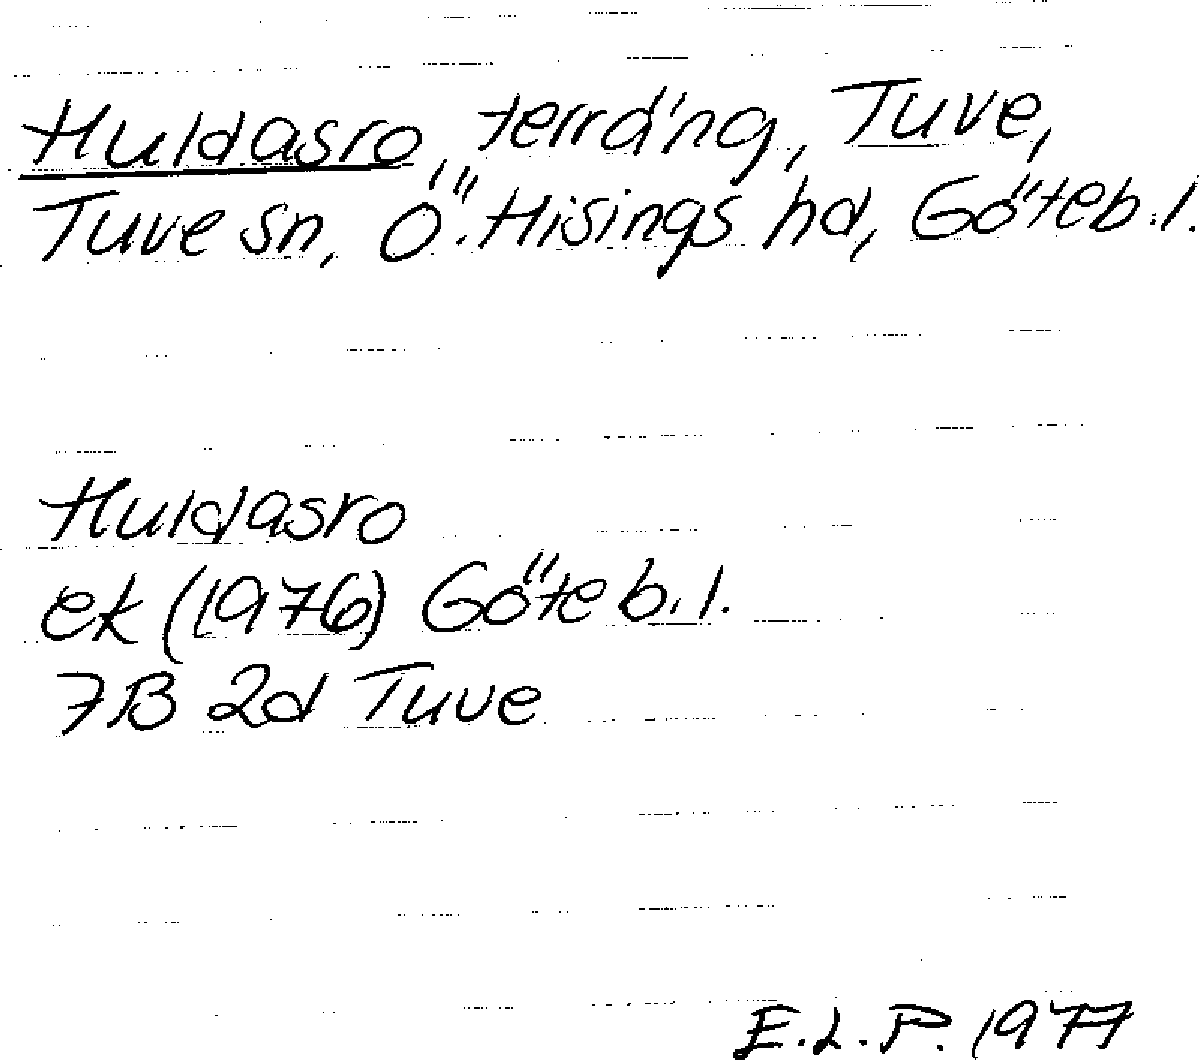 Huldasro, terräng, Tuve,
Tuve sn, Ö. Hisings hd, Göteb. l.
Huldasro
ek (1976) Göteb. l.
7B 2d Tuve
E.L.P. 1977